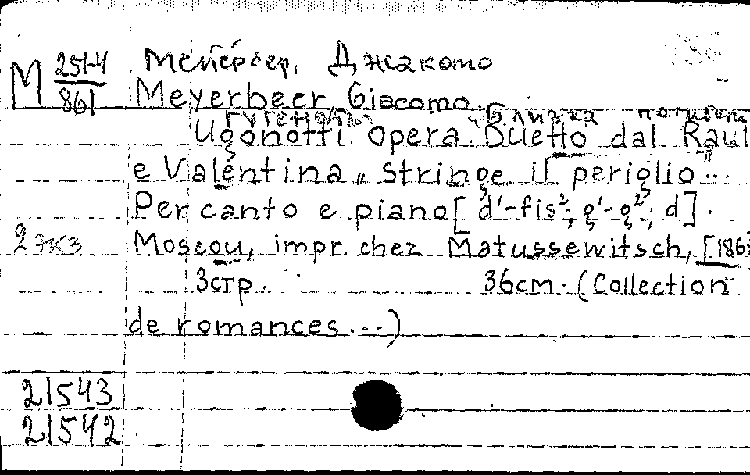 М 251-4/861
Мейербер, Джакомо
Meyerbeer, Giacomo
Гугеноты "Близка погибел
Ugonotti. Opera. Duetto dal Raul
e Valentina „Stringe il periglio"..
Per canto e piano [d'-fis², g'-g²; d].
2 экз Moscou, impr. chez Matussewitsch, [186
3стр. 36см. (Collection
de romances...)
21543
21542